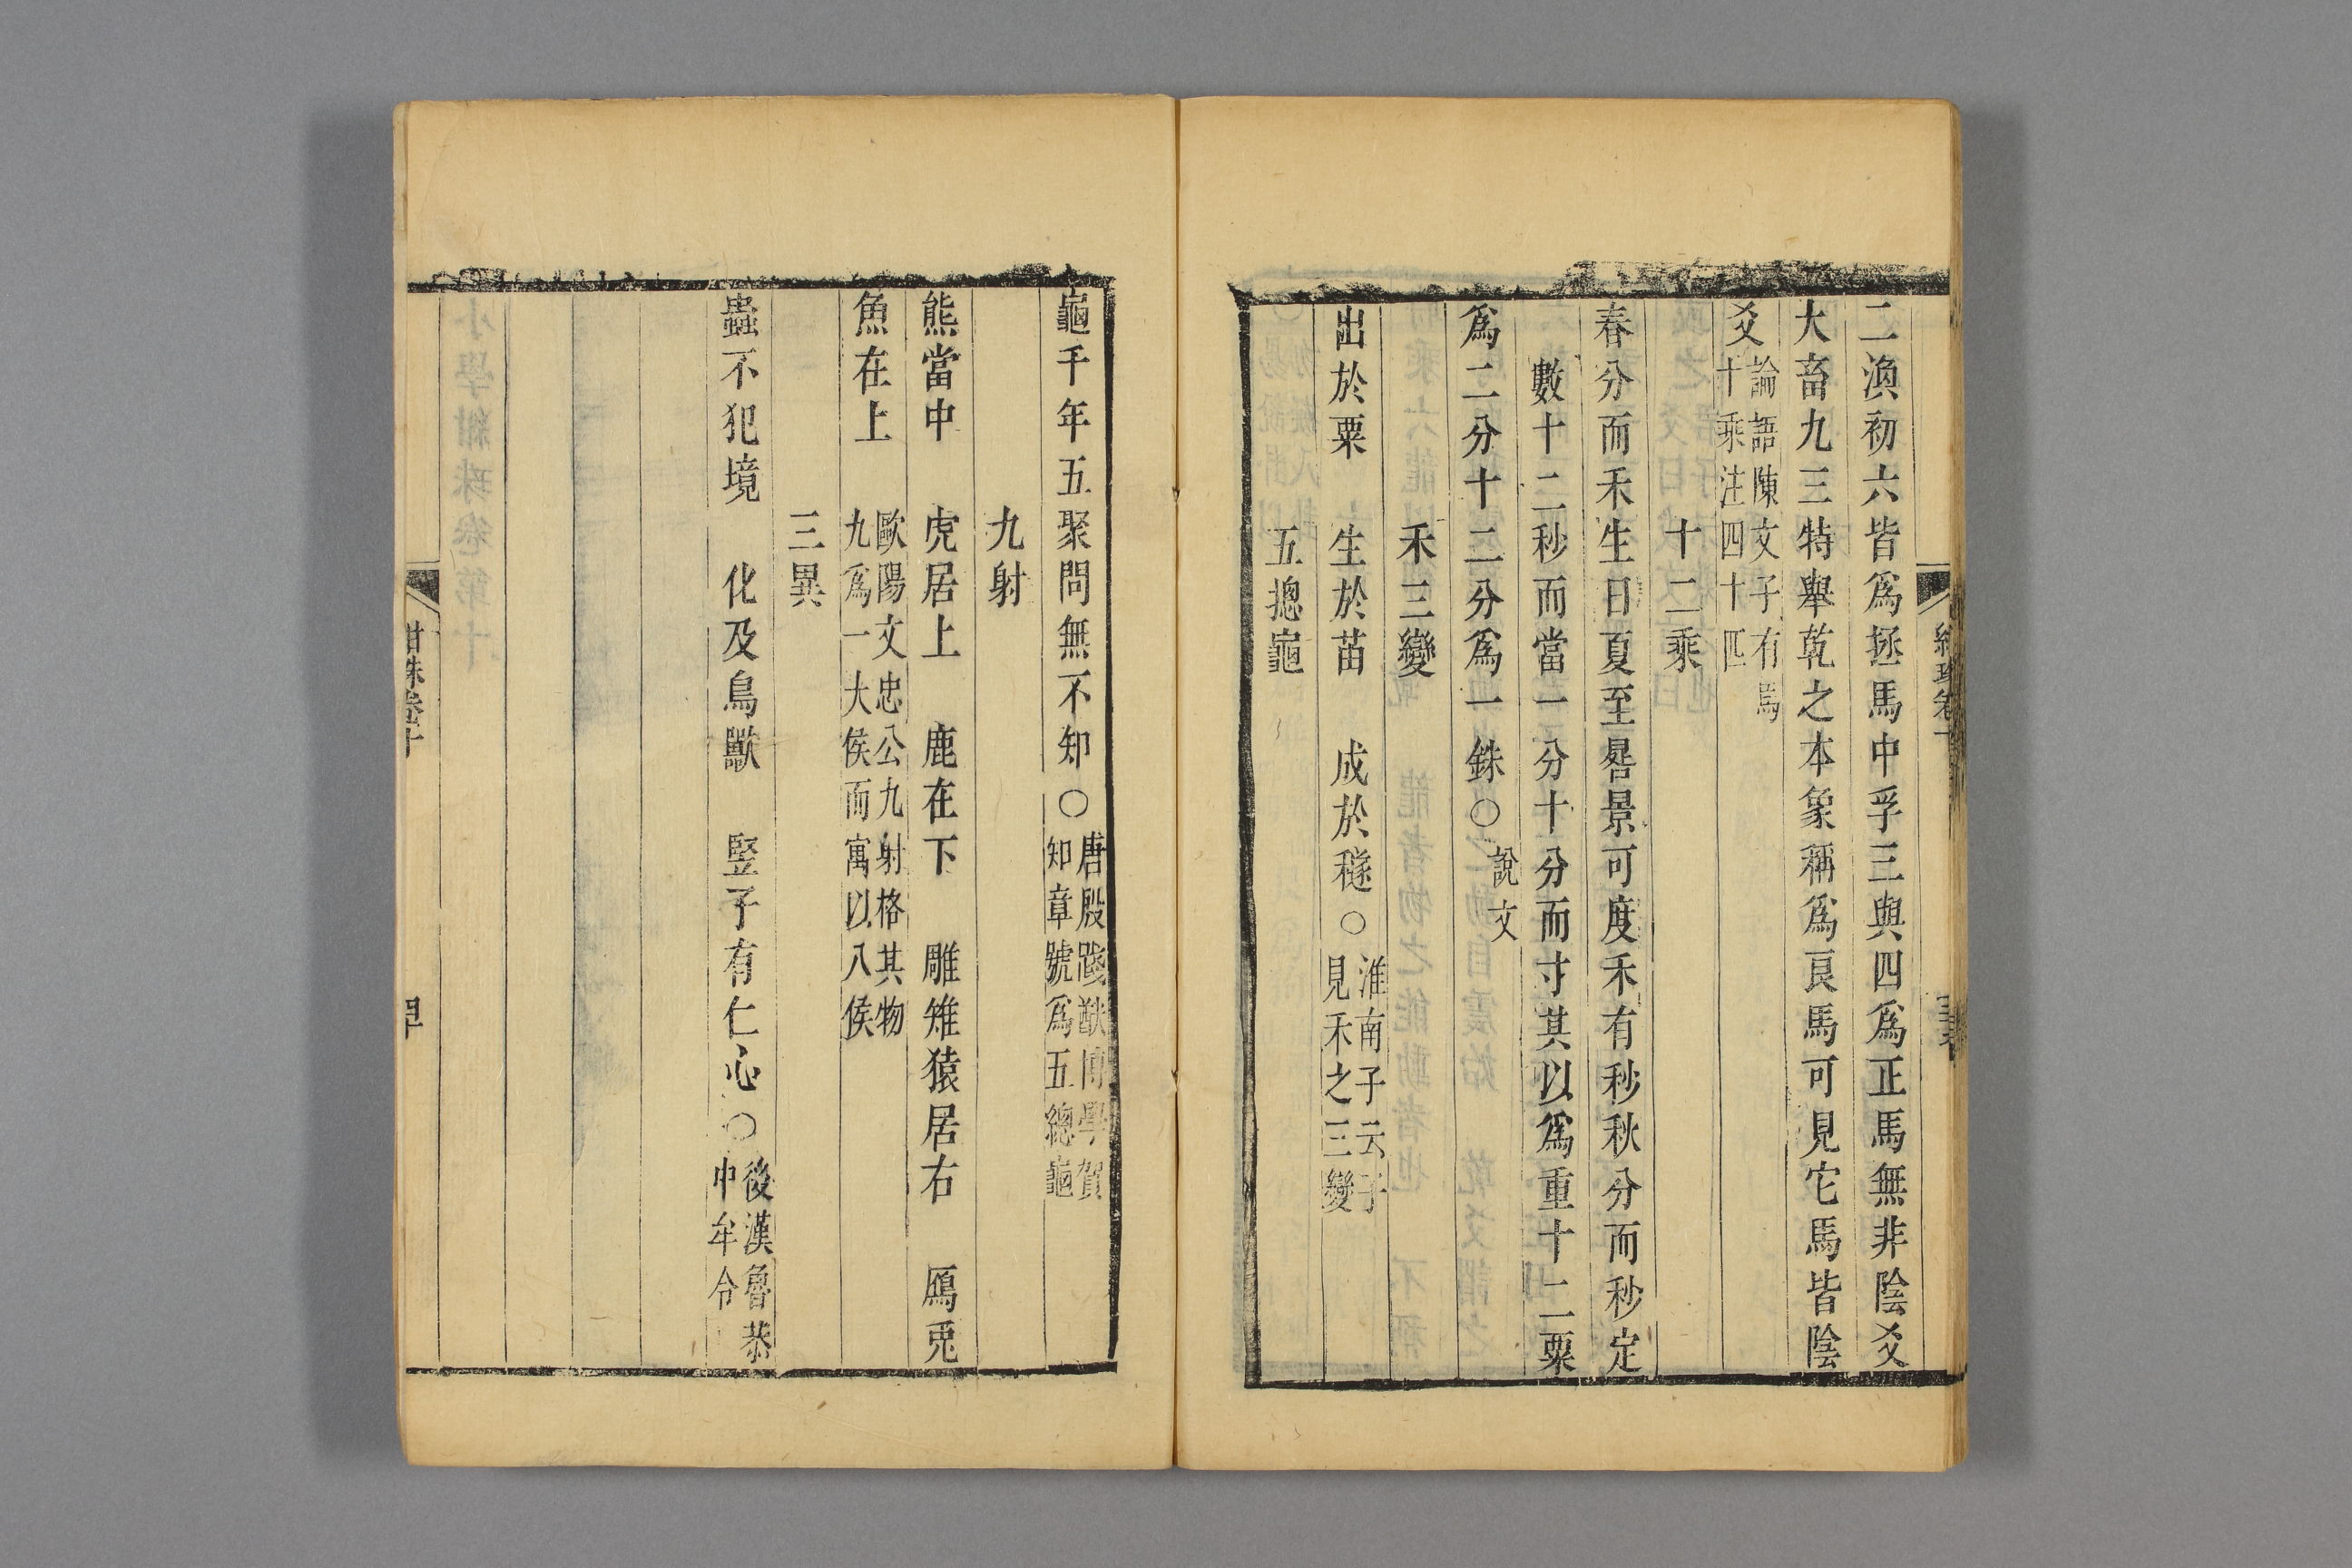 二渙初六皆爲拯馬中孚三與四爲正馬無非陰爻
大畜九三特舉乾之本象稱爲良馬可見它馬皆陰
爻論語陳文子有馬十乘注四十匹
十二乘
春分而禾生日夏至晷景可度禾有秒秋分而秒定
數十二秒而當一分十分而寸其以爲重十二粟
爲二分十二分爲一銖○說文
禾三變
出於粟 生於苗 成於穟○淮南子云子見禾之三變
五揔龜
龜千年五聚問無不知○唐殷踐猷博學賀知章號爲五總龜
九射
熊當中 虎居上 鹿在下 雕雉猿居右 鴈兎
魚在上 歐陽文忠公九射格其物九爲一大侯而寓以八侯
三異
蟲不犯境 化及鳥獸 豎子有仁心○後漢魯恭中牟令